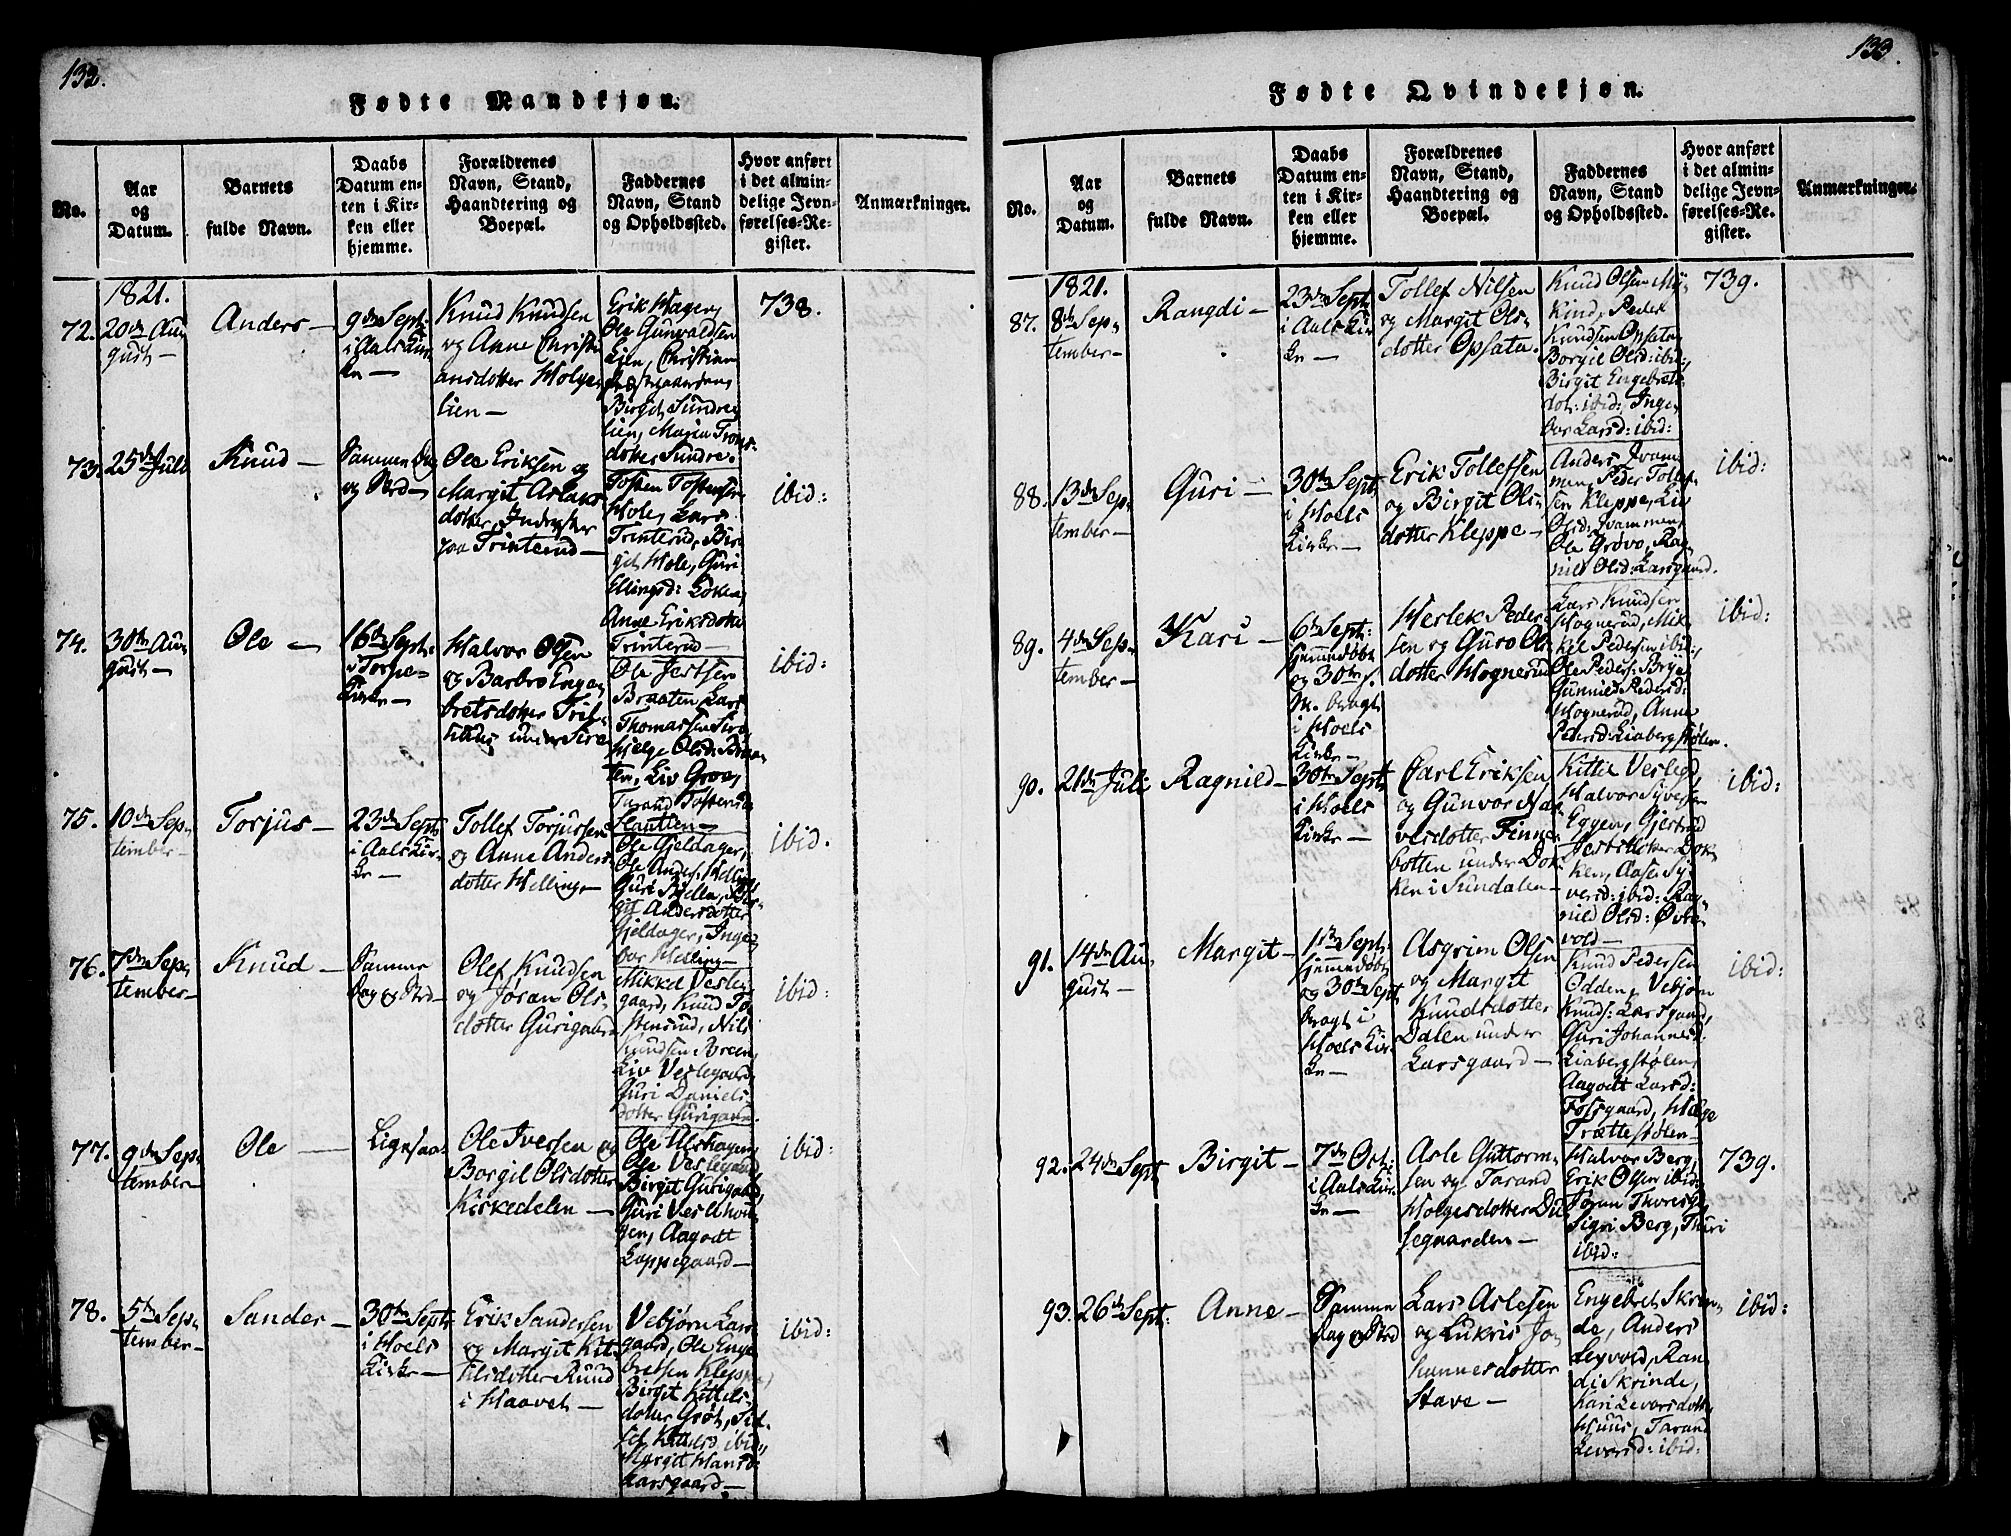 132.
Fødte Mandkjøn.
No.
Aar
og
Datum.
Barnets
fulde Navn.
Daabs
Datum en-
ten i Kir-
ken eller
hjemme.
Forældrenes
Navn, Stand,
Haandtering og
Boepæl.
Faddernes
Navn, Stand
og Opholdssted.
Hvor anført
i det almin-
delige Jevn-
førelses-Re-
gister.
Anmærkninger.
1821.
72. 20de Au-
gust —
Anders —
9de Sept:
i Aals Kir-
ke —
Knud Knudsen
og Anne Christi-
ansdotter Holge-
lien —
Erik Hagen,
Ole Gunvaldsen
Lien, Christian
Birgit Sundre-
lien, Maria Trons-
dotter Sundre.
738.
73. 25de Juli
Knud —
Samme Dag
og Sted —
Ole Eriksen og
Margit Aslaks-
dotter, Inderster
paa Trinterud —
Tosten Tostensen
Hole, Lars
Trinterud, Bir-
git Hole, Guri
Ellingsd: Løken,
Anne Eriksdotter
Trinterud —
ibid:
74. 30te Au-
gust —
Ole —
16de Sept:
i Torpe-
Kirke —
Halvor Olsen
og Barbro Enge-
bretsdotter
under Sire
Ole Jertsen
Braaten, Lars
Thomassen Sire
Helge Olsd: Braa-
ten, Liv Groe,
Tarand Tostensd:
Slaatlien —
ibid:
75. 10de Sep-
tember —
Torjus —
23de Sept:
i Aals Kir-
ke —
Tollef Torjussen
og Anne Anders-
dotter Helling —
Ole Gjeldager,
Ole Anders: Helling
Guri Bjella, Bir-
git Andersdotter
Gjeldager, Inge-
bor Helling —
ibid.
76. 7de Sep-
tember —
Knud —
Samme
Dag og Sted —
Olef Knudsen
og Jøran Ols-
dotter Gurigaard
Mikkel Vesle-
gaard, Knud To-
stensrud, Nils
Knudsen Breen,
Liv Veslegaard,
Guri Daniels-
dotter Gurigaard.
ibid:
77. 9de Sep-
tember —
Ole —
Ligesaa
Ole Iversen og
Borgil Olsdotter
Kirkedelen —
Ole Ulshagen,
Ole Veslegaard
Birgit Gurigaard,
Guri Veslehou-
gen, Aagodt
Loppegaard —
ibid:
78. 5te Sep-
tember —
Sander —
30te Sept:
i Hoels
Kirke —
Erik Sandersen
og Margit Kit-
telsdotter Ruud
i Haavet —
Vebjørn Lars-
gaard, Ole Enge-
bretsen Kleppe,
Birgit Kittels-
dotter Grøt, Sid-
sel Kittelsd. ibid,
Margit Hansd:
Larsgaard —
ibid:
133.
Fødte Qvindekjøn.
No.
Aar
og
Datum.
Barnets
fulde Navn.
Daabs
Datum en-
ten i Kir-
ken eller
hjemme.
Forældrenes
Navn, Stand,
Haandtering og
Boepæl.
Faddernes
Navn, Stand
og Opholdssted.
Hvor anført
i det almin-
delige Jevn-
førelses-Re-
gister.
Anmærkninger.
1821.
87. 8de Sep-
tember —
Rangdi —
23de Sept:
i Aals Kir-
ke —
Tollef Nilsen
og Margit Ols-
dotter Opsata.
Knud Olsen My-
king, Peder
Knudsen Opsata,
Borgil Olsd: ibid:,
Birgit Engebrets-
dot: ibid: Inge-
bor Larsd: ibid:
739.
88. 13de Sep-
tember —
Guri —
30te Sept:
i Hoels
Kirke —
Erik Tollefsen
og Birgit Ols-
dotter Kleppe —
Anders Kvam-
men, Peder Tollef-
sen Kleppe, Liv
Olsd: Kvammen,
Ole Grøvo, Rag-
nild Olsd: Larsgaard.
ibid:
89. 4de Sep-
tember —
Kari —
6te Sept:
hjemmedøbt
og 30te s.
M. bragt
i Hoels
Kirke —
Herlek Peder-
sen og Guro Ols-
dotter Hognerud
Lars Knudsen
Hognerud, Mik-
kel Pedersen ibid:,
Ole Peders: Brye,
Gunnild Pedersd:
Hognerud, Anne
Pedersd: Liabergstølen.
ibid:
90. 21de Juli
Ragnild —
30te Sept:
i Hoels
Kirke —
Carl Eriksen
og Gunvor Hal-
vorsdotter Finne-
botten under Dok-
ken i Sundalen —
Kittil Veslegd,
Halvor Syversen
Eggen, Gjertrud
Jertsdotter Dok-
ken, Aase Sy-
versd: ibid: Rag-
nild Olsd: Øvre-
vold —
ibid:
91. 14de Au-
gust —
Margit —
1ste Sept:
hjemmedøbt
og 30te Sept
bragt i
Hoels Kir-
ke —
Asgrim Olsen
og Margit
Knudsdotter
Dalen under
Larsgaard —
Knud Pedersen
Odden, Vebjørn
Knuds: Larsgaard,
Guri Johannesd:
Liabergstølen,
Aagodt Larsd:
Fossgaard, Helge
Trættestølen —
ibid:
92. 24de Sept:
Birgit —
7de Oct:
i Aals Kir-
ke —
Asle Guttorm-
sen og Tarand
Holgesdotter Du-
segaarden —
Halvor Berg,
Erik Olsen ibid:
Jøran Thoresg:
Sigri Berg, Thuri
ibid:
739.
93. 26de Sept:
Anne —
Samme
Dag og Sted
Lars Aslesen
og Lukris Jo-
hannesdotter
Stave —
Engebret Skrin-
de, Anders
Leqvold, Ran-
di Skrinde,
Kari Levorsdotter
Huus, Tarand
Levorsd: ibid:
ibid: